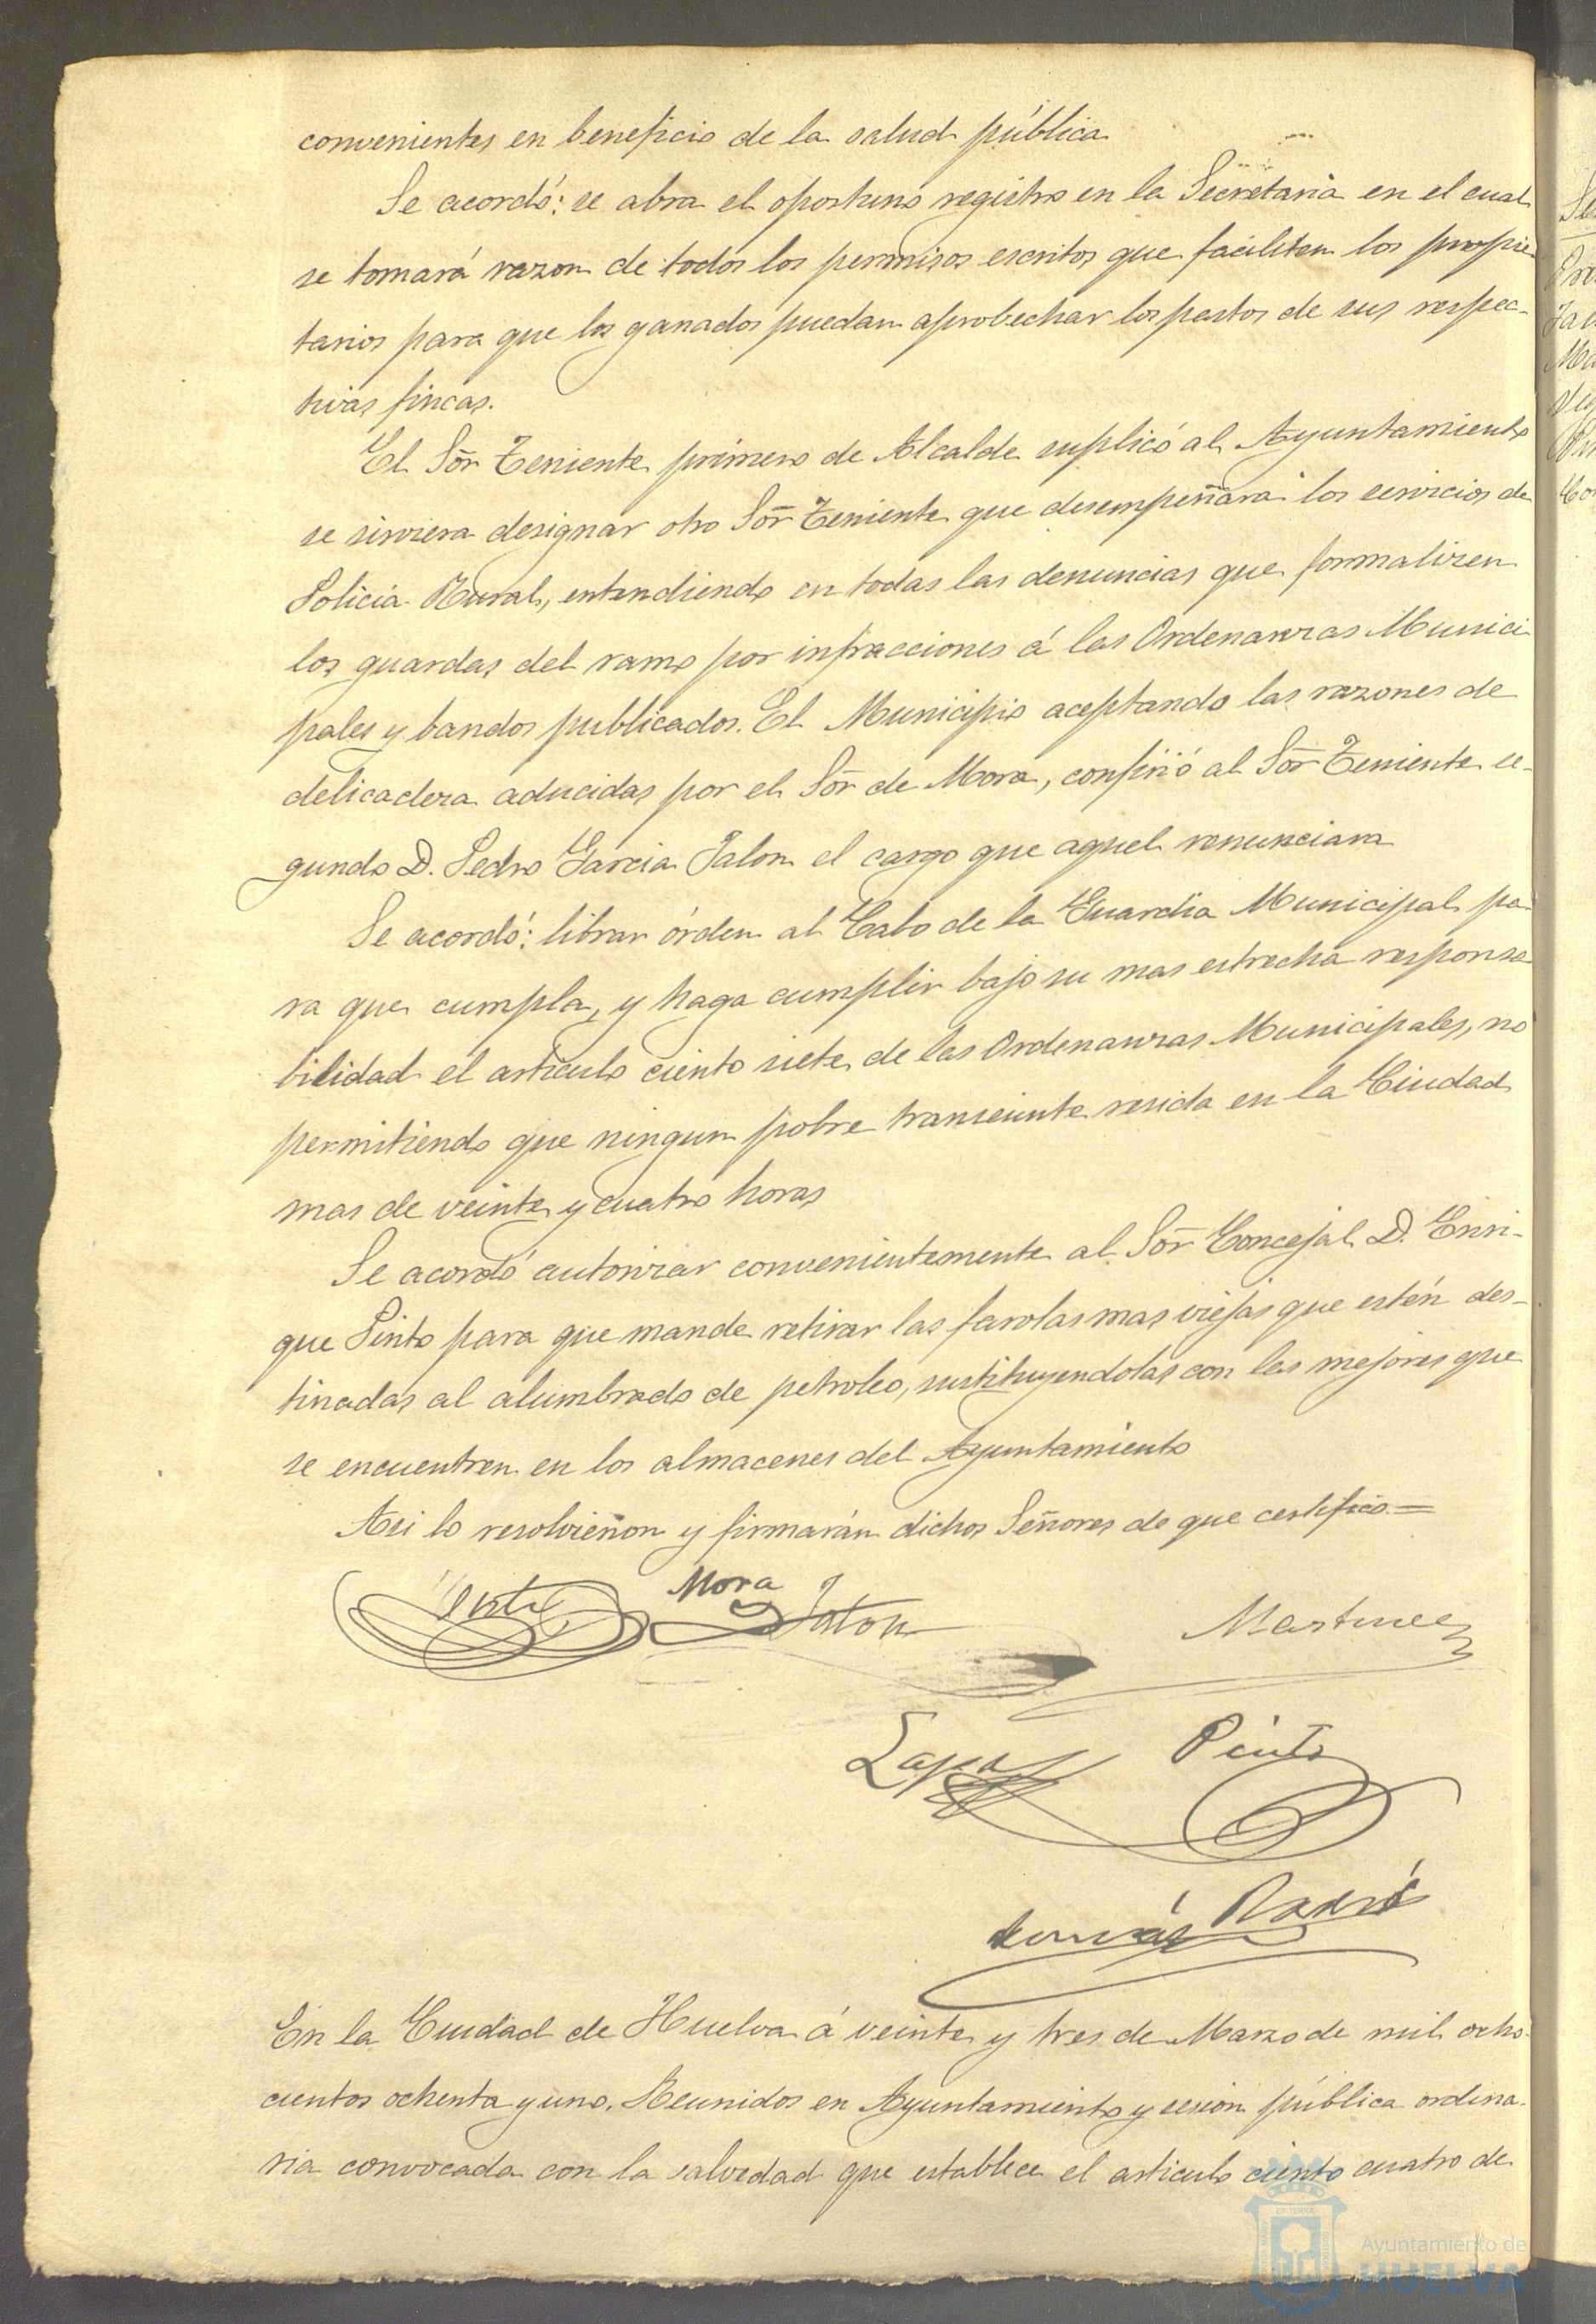 convenientes en beneficio de la salud pública
Se acordó: se abra el oportuno registro en la Secretaria en el cual
se tomará razon de todos los permisos escritos que faciliten los propie
tarios para que los ganados puedan aprobechar los pastos de sus respec-
tivas fincas.
El Sõr Teniente primero de Alcalde suplicó al Ayuntamiento
se sirviera designar otro Sõr Teniente que desempeñara los servicios de
Policia Rural, entendiendo en todas las denuncias que formalizen
los guardas del ramo por infracciones á las Ordenanzas Munici
pales y bandos publicados. El Municipio aceptando las razones de
delicadeza aducidas por el Sõr de Mora, confirió al Sõr Teniente se-
gundo D. Pedro Garcia Jalon el cargo que aquel renunciara
Se acordó: librar órden al Cabo de la Guardia Municipal pa
ra que cumpla, y haga cumplir bajo su mas estrecha responsa
bilidad el articulo ciento siete de las Ordenanzas Municipales, no
permitiendo que ningun pobre transeunte resida en la Ciudad
mas de veinte y cuatro horas
Se acordó autorizar convenientemente al Sõr Concejal D. Enri-
que Pinto para que mande retirar las farolas mas viejas que estén des-
tinadas al alumbrado de petroleo, sustituyendolas con las mejores que
se encuentren en los almacenes del Ayuntamiento
Asi lo resolvieron y firmarán dichos Señores de que certifico.=
Mora
Jalon
Martinez
Pinto
En la Ciudad de Huelva á veinte y tres de Marzo de mil ocho-
cientos ochenta y uno. Reunidos en Ayuntamiento y sesion pública ordina-
ria convocada con la salvedad que establece el articulo ciento cuatro de
Ayuntamiento de
HUELVA